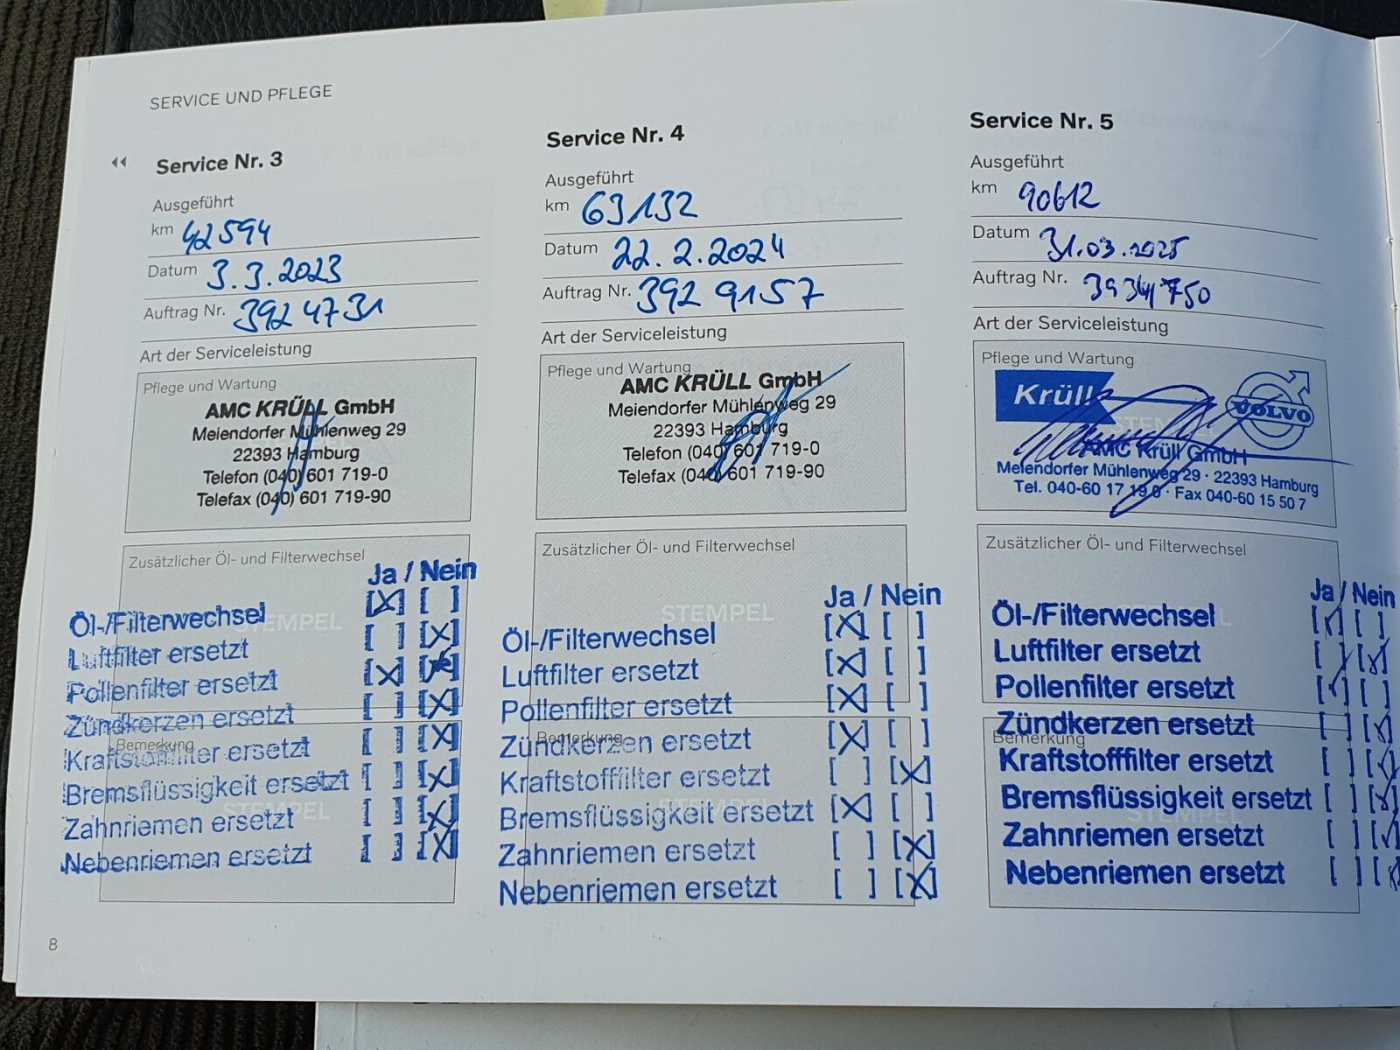 SERVICE UND PFLEGE
Service Nr. 3
Ausgeführt
km 42594
Datum 3.3.2023
Auftrag Nr. 3924731
Art der Serviceleistung
Pflege und Wartung
AMC KRÜLL GmbH
Meiendorfer Mühlenweg 29
22393 Hamburg
Telefon (040) 601 719-0
Telefax (040) 601 719-90
Zusätzlicher Öl- und Filterwechsel
STEMPEL
Ja / Nein
Öl-/Filterwechsel [X] [ ]
Luftfilter ersetzt [ ] [X]
Pollenfilter ersetzt [X] [X]
Zündkerzen ersetzt [ ] [X]
Bemerkung
Kraftstofffilter ersetzt [ ] [X]
Bremsflüssigkeit ersetzt [ ] [X]
STEMPEL
Zahnriemen ersetzt [ ] [X]
Nebenriemen ersetzt [ ] [X]
8
Service Nr. 4
Ausgeführt
km 63132
Datum 22.2.2024
Auftrag Nr. 3929157
Art der Serviceleistung
Pflege und Wartung
AMC KRÜLL GmbH
Meiendorfer Mühlenweg 29
22393 Hamburg
Telefon (040) 601 719-0
Telefax (040) 601 719-90
Zusätzlicher Öl- und Filterwechsel
STEMPEL
Ja / Nein
Öl-/Filterwechsel [X] [ ]
Luftfilter ersetzt [X] [ ]
Pollenfilter ersetzt [X] [ ]
Bemerkung
Zündkerzen ersetzt [X] [ ]
Kraftstofffilter ersetzt [ ] [X]
STEMPEL
Bremsflüssigkeit ersetzt [X] [ ]
Zahnriemen ersetzt [ ] [X]
Nebenriemen ersetzt [ ] [X]
Service Nr. 5
Ausgeführt
km 90612
Datum 31.03.2025
Auftrag Nr. 3934750
Art der Serviceleistung
Pflege und Wartung
Krüll
VOLVO
STEMPEL
AMC Krüll GmbH
Meiendorfer Mühlenweg 29 · 22393 Hamburg
Tel. 040-60 17 19 0 · Fax 040-60 15 50 7
Zusätzlicher Öl- und Filterwechsel
Ja / Nein
Öl-/Filterwechsel [✓] [ ]
Luftfilter ersetzt [ ] [✓]
Pollenfilter ersetzt [✓] [ ]
Zündkerzen ersetzt [ ] [✓
Bemerkung
Kraftstofffilter ersetzt [ ] [✓
Bremsflüssigkeit ersetzt [ ] [✓
STEMPEL
Zahnriemen ersetzt [ ] [✓
Nebenriemen ersetzt [ ] [✓